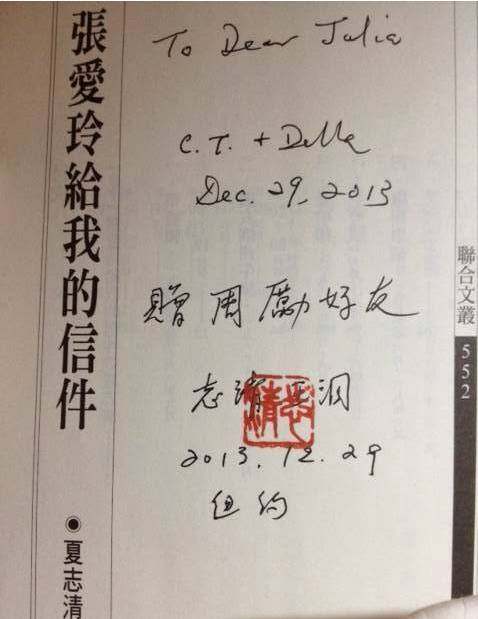 張愛玲給我的信件
◉夏志清
To Dear Julia
C.T. + Della
Dec. 29, 2013
贈周勵好友
志清 王洞
2013.12.29
纽约
聯合文叢
552